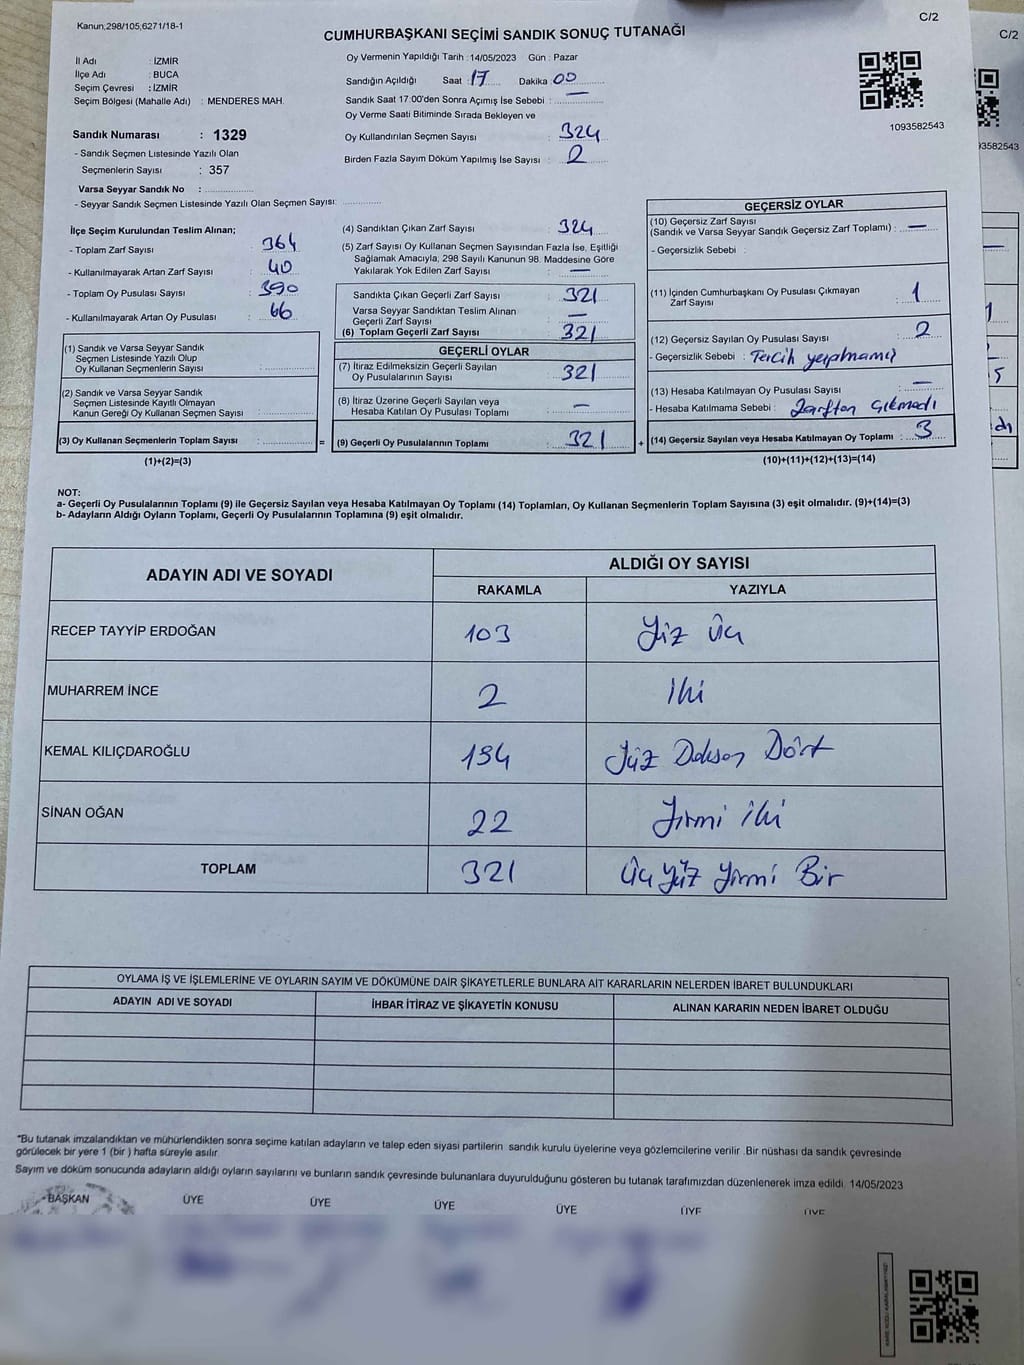 Kanun;298/105,6271/18-1
C/2
CUMHURBAŞKANI SEÇİMİ SANDIK SONUÇ TUTANAĞI
İl Adı : İZMİR
İlçe Adı : BUCA
Seçim Çevresi : İZMİR
Seçim Bölgesi (Mahalle Adı) : MENDERES MAH.
Sandık Numarası : 1329
- Sandık Seçmen Listesinde Yazılı Olan
Seçmenlerin Sayısı : 357
Varsa Seyyar Sandık No : ..............
- Seyyar Sandık Seçmen Listesinde Yazılı Olan Seçmen Sayısı: ............
Oy Vermenin Yapıldığı Tarih : 14/05/2023 Gün : Pazar
Sandığın Açıldığı Saat : 17 Dakika : 00
Sandık Saat 17:00'den Sonra Açımış İse Sebebi : —
Oy Verme Saati Bitiminde Sırada Bekleyen ve
Oy Kullandırılan Seçmen Sayısı : 324
Birden Fazla Sayım Döküm Yapılmış İse Sayısı : 2
1093582543
İlçe Seçim Kurulundan Teslim Alınan;
- Toplam Zarf Sayısı : 364
- Kullanılmayarak Artan Zarf Sayısı : 40
- Toplam Oy Pusulası Sayısı : 390
- Kullanılmayarak Artan Oy Pusulası : 66
(1) Sandık ve Varsa Seyyar Sandık
Seçmen Listesinde Yazılı Olup
Oy Kullanan Seçmenlerin Sayısı : ............
(2) Sandık ve Varsa Seyyar Sandık
Seçmen Listesinde Kayıtlı Olmayan
Kanun Gereği Oy Kullanan Seçmen Sayısı : ............
(3) Oy Kullanan Seçmenlerin Toplam Sayısı : ............ =
(1)+(2)=(3)
(4) Sandıktan Çıkan Zarf Sayısı : 324
(5) Zarf Sayısı Oy Kullanan Seçmen Sayısından Fazla İse, Eşitliği
Sağlamak Amacıyla, 298 Sayılı Kanunun 98. Maddesine Göre
Yakılarak Yok Edilen Zarf Sayısı : —
Sandıkta Çıkan Geçerli Zarf Sayısı : 321
Varsa Seyyar Sandıktan Teslim Alınan
Geçerli Zarf Sayısı : —
(6) Toplam Geçerli Zarf Sayısı : 321
GEÇERLİ OYLAR
(7) İtiraz Edilmeksizin Geçerli Sayılan
Oy Pusulalarının Sayısı : 321
(8) İtiraz Üzerine Geçerli Sayılan veya
Hesaba Katılan Oy Pusulası Toplamı : —
(9) Geçerli Oy Pusulalarının Toplamı : 321 +
GEÇERSİZ OYLAR
(10) Geçersiz Zarf Sayısı
(Sandık ve Varsa Seyyar Sandık Geçersiz Zarf Toplamı) : —
- Geçersizlik Sebebi :
(11) İçinden Cumhurbaşkanı Oy Pusulası Çıkmayan
Zarf Sayısı : 1
(12) Geçersiz Sayılan Oy Pusulası Sayısı : 2
- Geçersizlik Sebebi : Tercih yapılmamış
(13) Hesaba Katılmayan Oy Pusulası Sayısı : —
- Hesaba Katılmama Sebebi : Zarftan çıkmadı
(14) Geçersiz Sayılan veya Hesaba Katılmayan Oy Toplamı : 3
(10)+(11)+(12)+(13)=(14)
NOT:
a- Geçerli Oy Pusulalarının Toplamı (9) ile Geçersiz Sayılan veya Hesaba Katılmayan Oy Toplamı (14) Toplamları, Oy Kullanan Seçmenlerin Toplam Sayısına (3) eşit olmalıdır. (9)+(14)=(3)
b- Adayların Aldığı Oyların Toplamı, Geçerli Oy Pusulalarının Toplamına (9) eşit olmalıdır.
ADAYIN ADI VE SOYADI
ALDIĞI OY SAYISI
RAKAMLA YAZIYLA
RECEP TAYYİP ERDOĞAN 103 Yüz Üç
MUHARREM İNCE 2 İki
KEMAL KILIÇDAROĞLU 194 Yüz Doksan Dört
SİNAN OĞAN 22 Yirmi iki
TOPLAM 321 Üç Yüz Yirmi Bir
OYLAMA İŞ VE İŞLEMLERİNE VE OYLARIN SAYIM VE DÖKÜMÜNE DAİR ŞİKAYETLERLE BUNLARA AİT KARARLARIN NELERDEN İBARET BULUNDUKLARI
ADAYIN ADI VE SOYADI İHBAR İTİRAZ VE ŞİKAYETİN KONUSU ALINAN KARARIN NEDEN İBARET OLDUĞU
*Bu tutanak imzalandıktan ve mühürlendikten sonra seçime katılan adayların ve talep eden siyasi partilerin sandık kurulu üyelerine veya gözlemcilerine verilir .Bir nüshası da sandık çevresinde
görülecek bir yere 1 (bir ) hafta süreyle asılır.
Sayım ve döküm sonucunda adayların aldığı oyların sayılarını ve bunların sandık çevresinde bulunanlara duyurulduğunu gösteren bu tutanak tarafımızdan düzenlenerek imza edildi. 14/05/2023
BAŞKAN ÜYE ÜYE ÜYE ÜYE ÜYE ÜYE
C/2
93582543